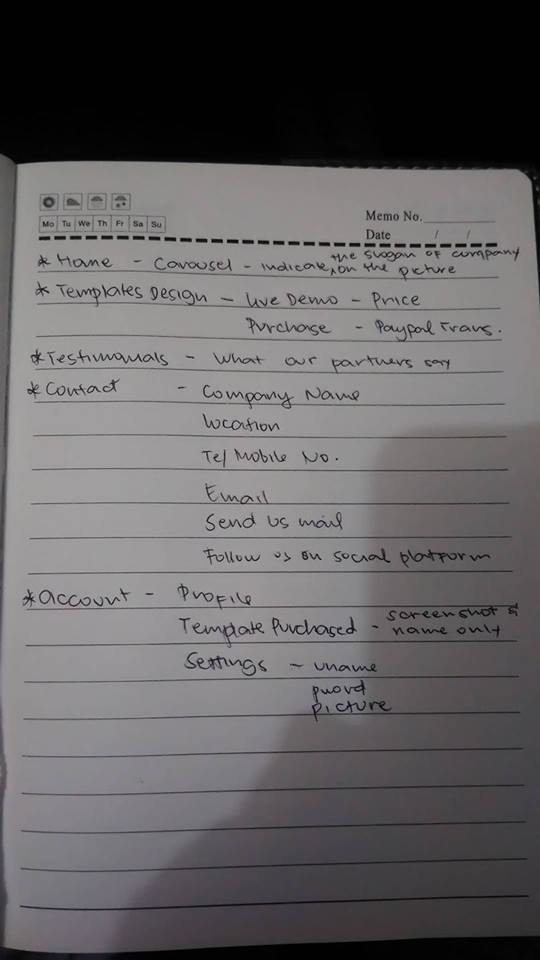 Memo No.
Mo Tu We Th Fr Sa Su
Date / /
* Home - Carousel - indicate the slogan of company on the picture
* Templates Design - Live Demo - Price
Purchase - Paypal Trans.
* Testimonials - What our partners say
* Contact - Company Name
Location
Tel/Mobile No.
Email
Send us mail
Follow us on social platform
* Account - Profile
Template Purchased - screenshot & name only
Settings - uname
pword
picture